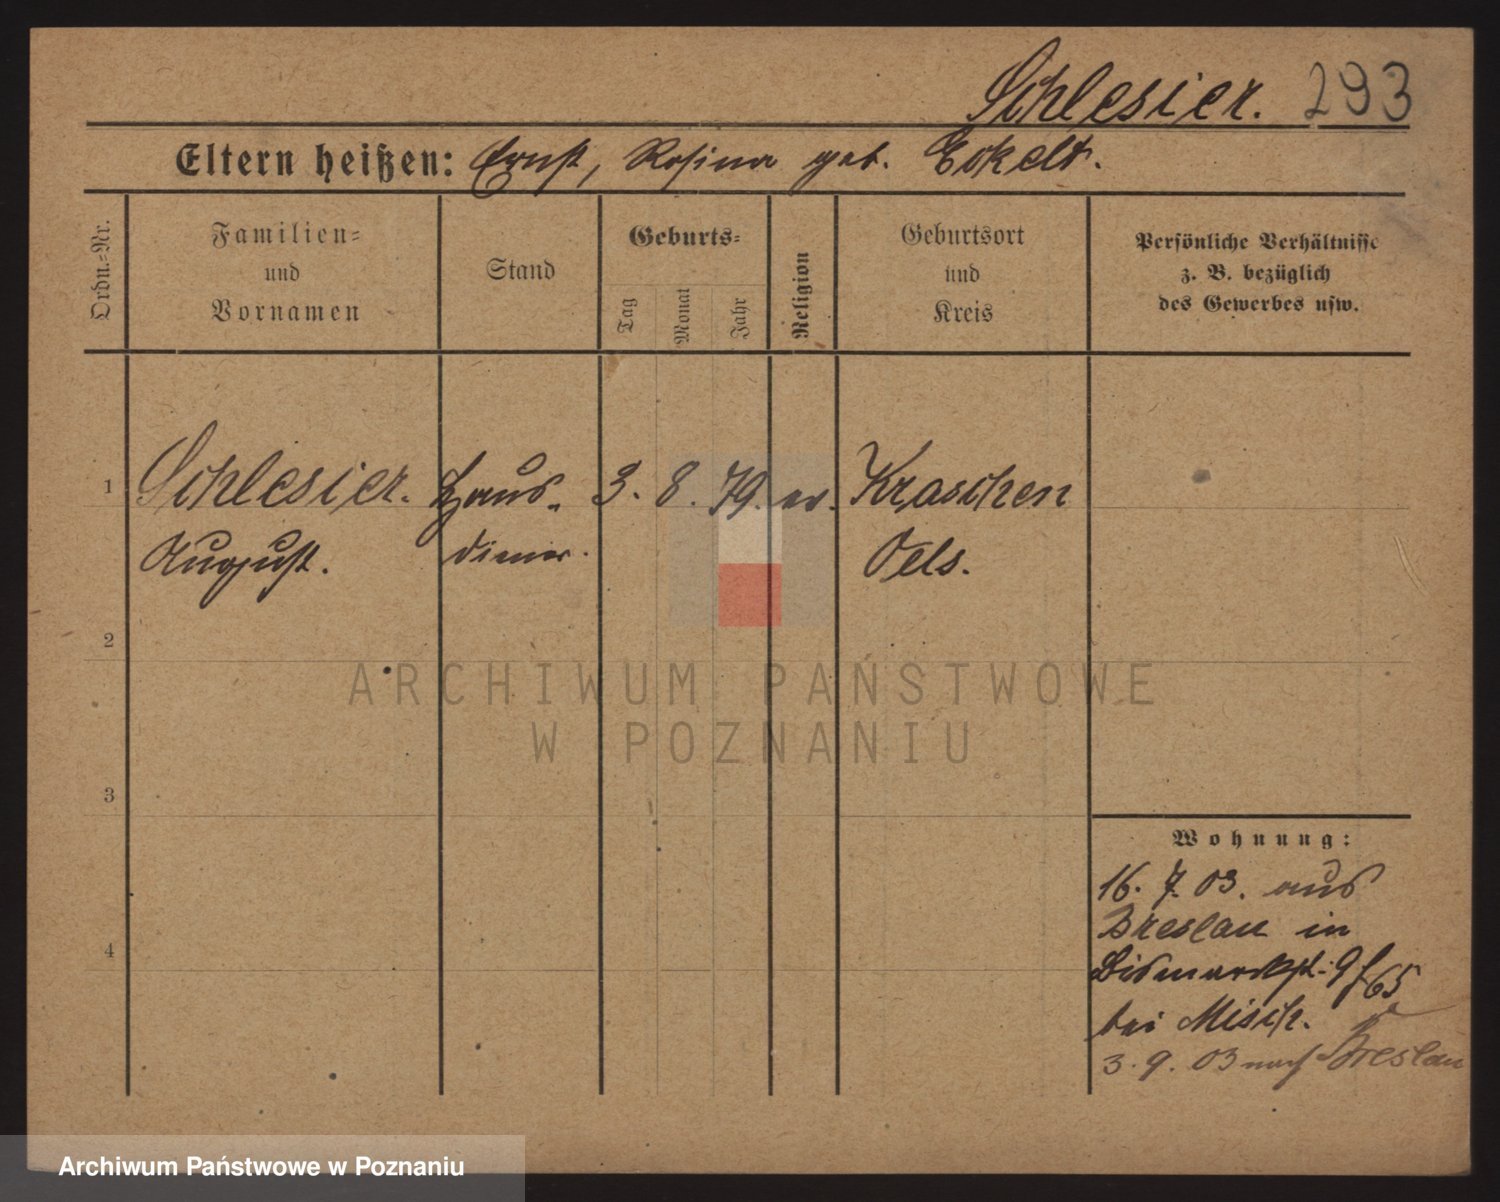 Schlesier. 293
Eltern heißen: Ernst, Rosina geb. Eckelt.
Ordn.-Nr.
Familien-
und
Vornamen
Stand
Geburts-
Tag
Monat
Jahr
Religion
Geburtsort
und
Kreis
Persönliche Verhältnisse
z. B. bezüglich
des Gewerbes usw.
1 Schlesier. Haus- 3. 8. 79. ev. Kraschen
August. diener. Oels.
2
3
4
Wohnung:
16. 7. 03. aus
Breslau in
Bismarckst. 9 f 65
bei Misch.
3. 9. 03 nach Breslau
ARCHIWUM PAŃSTWOWE
W POZNANIU
Archiwum Państwowe w Poznaniu